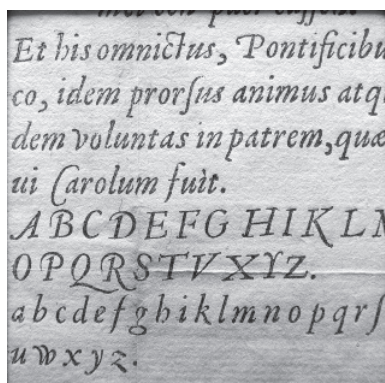 Et his omnictus, Pontificibu
co, idem prorſus animus atq
dem voluntas in patrem, quæ
ui Carolum fuit.
A B C D E F G H I K L M
O P Q R S T V X Y Z.
a b c d e f g h i k l m n o p q r ſ
u w x y z.